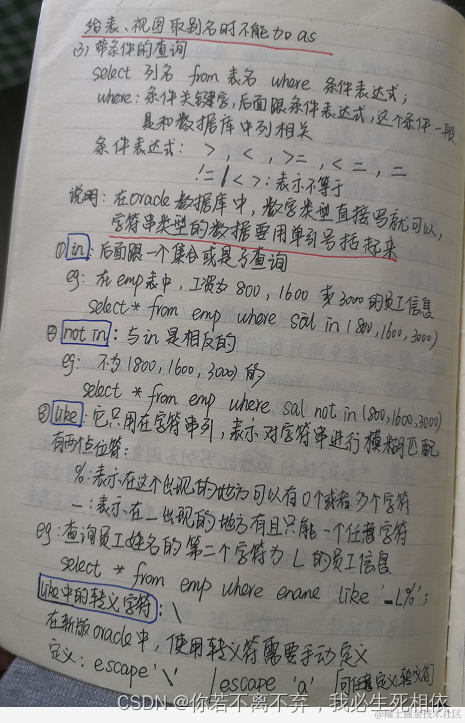 给表、视图取别名时不能加as
(3) 带条件的查询
select 列名 from 表名 where 条件表达式;
where:条件关键字,后面跟条件表达式,这个条件一般
是和数据库中列相关
条件表达式: >, <, >=, <=, =
!= / <>:表示不等于
说明:在oracle数据库中,数字类型直接写就可以,
字符串类型的数据要用单引号括起来
① in:后面跟一个集合或是子查询
eg: 在emp表中,工资为800, 1600 或3000的员工信息
select * from emp where sal in (800,1600,3000)
② not in:与in是相反的
eg: 不为(800,1600,3000)的
select * from emp where sal not in (800,1600,3000)
③ like:它只用在字符串列,表示对字符串进行模糊匹配
有两个占位符:
%:表示在这个出现的地方可以有0个或者多个字符
_:表示在_出现的地方有且只能一个任意字符
eg:查询员工姓名的第二个字符为L的员工信息
select * from emp where ename like '_L%';
like中的转义字符:\
在新版oracle中,使用转义符需要手动定义
定义:escape '\' / escape 'a' [可任意定义转义符]
CSDN @你若不离不弃,我必生死相依
@稀土掘金技术社区